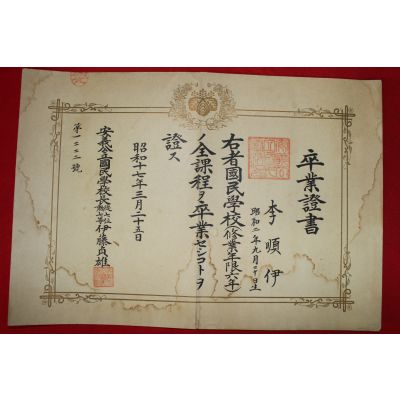 卒業證書
李順伊
昭和二年九月二十日生
右者國民學校(修業年限六年)
ノ全課程ヲ卒業セシコトヲ
證ス
昭和十七年三月二十五日
安義公立國民學校長 伊藤貞雄
第一二三二號